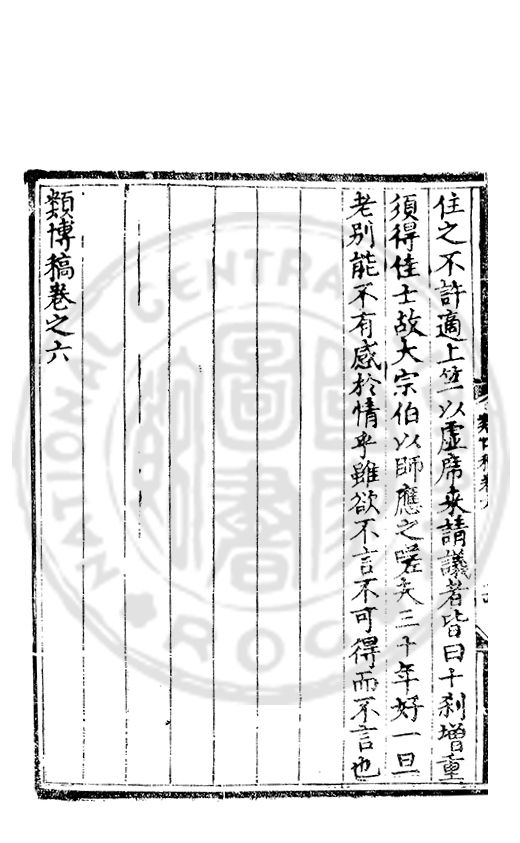 住之不許適上竺以虛席來請議者皆曰十刹增重
須得佳士故大宗伯以師應之嗟夫三十年好一旦
老別能不有感於情乎雖欲不言不可得而不言也
類博稿卷之六
NATIONAL CENTRAL
圖書